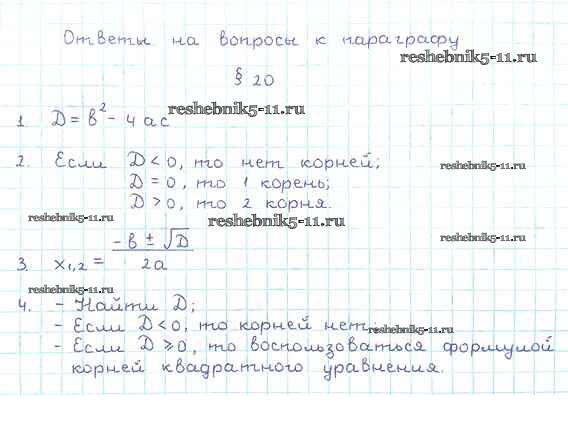 Ответы на вопросы к параграфу
reshebnik5-11.ru
§ 20
reshebnik5-11.ru
1. D = b² - 4ac
2. Если D < 0, то нет корней;
reshebnik5-11.ru
D = 0, то 1 корень;
D > 0, то 2 корня.
reshebnik5-11.ru
reshebnik5-11.ru
reshebnik5-11.ru
3. x₁,₂ = (-b ± √D) / 2a
reshebnik5-11.ru
4. - Найти D;
- Если D < 0, то корней нет;
reshebnik5-11.ru
- Если D ⩾ 0, то воспользоваться формулой
корней квадратного уравнения.